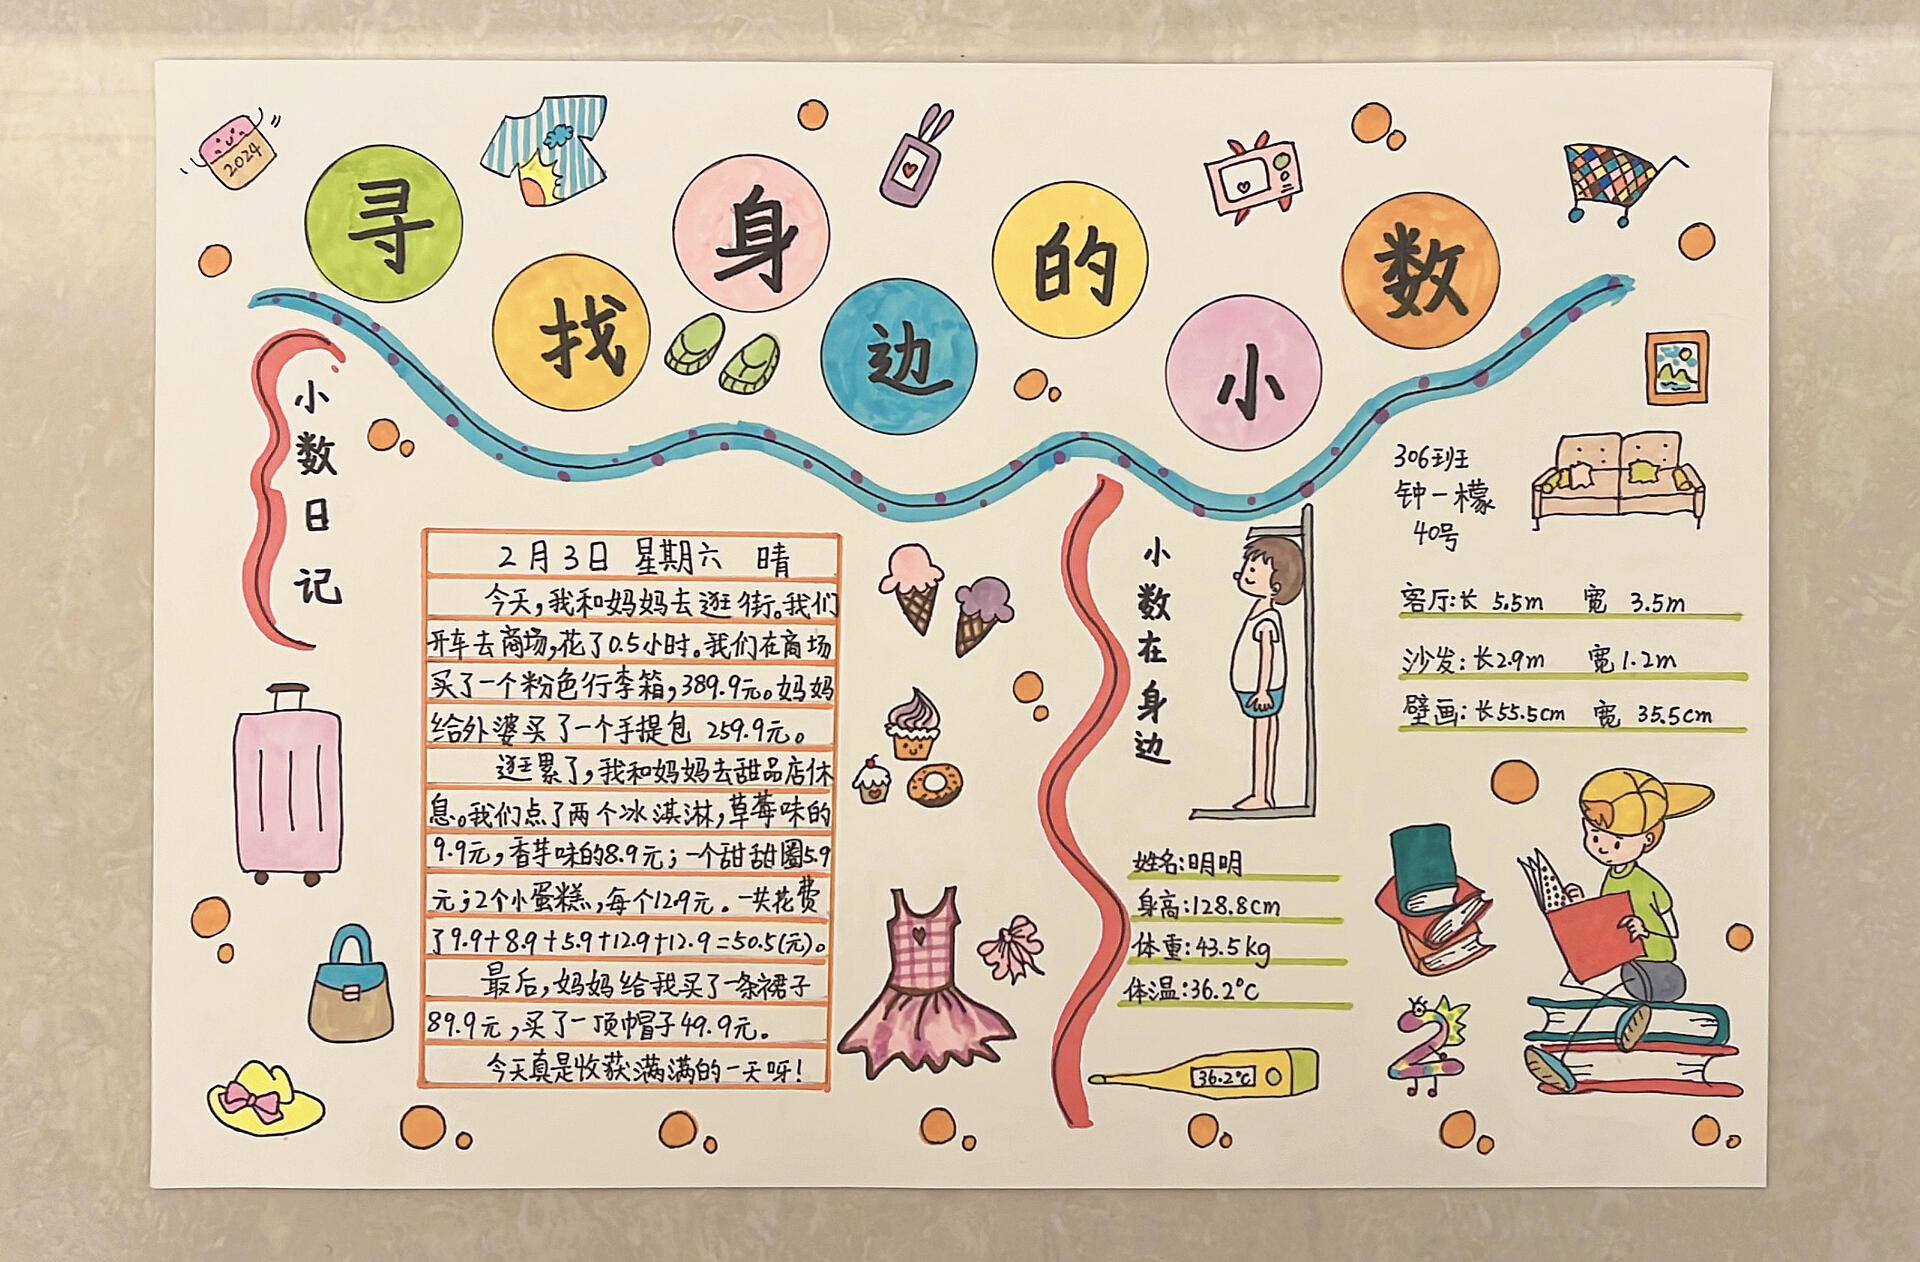 2024
寻找身边的小数
小数日记
2月3日 星期六 晴
今天，我和妈妈去逛街。我们
开车去商场，花了0.5小时。我们在商场
买了一个粉色行李箱，389.9元。妈妈
给外婆买了一个手提包 259.9元。
逛累了，我和妈妈去甜品店休
息。我们点了两个冰淇淋，草莓味的
9.9元，香芋味的8.9元；一个甜甜圈5.9
元；2个小蛋糕，每个12.9元。一共花费
了9.9+8.9+5.9+12.9+12.9=50.5(元)。
最后，妈妈给我买了一条裙子
89.9元，买了一顶帽子49.9元。
今天真是收获满满的一天呀！
小数在身边
姓名：明明
身高：128.8cm
体重：43.5kg
体温：36.2°C
36.2°C
306班
钟一檬
40号
客厅：长 5.5m 宽 3.5m
沙发：长2.9m 宽1.2m
壁画：长55.5cm 宽 35.5cm